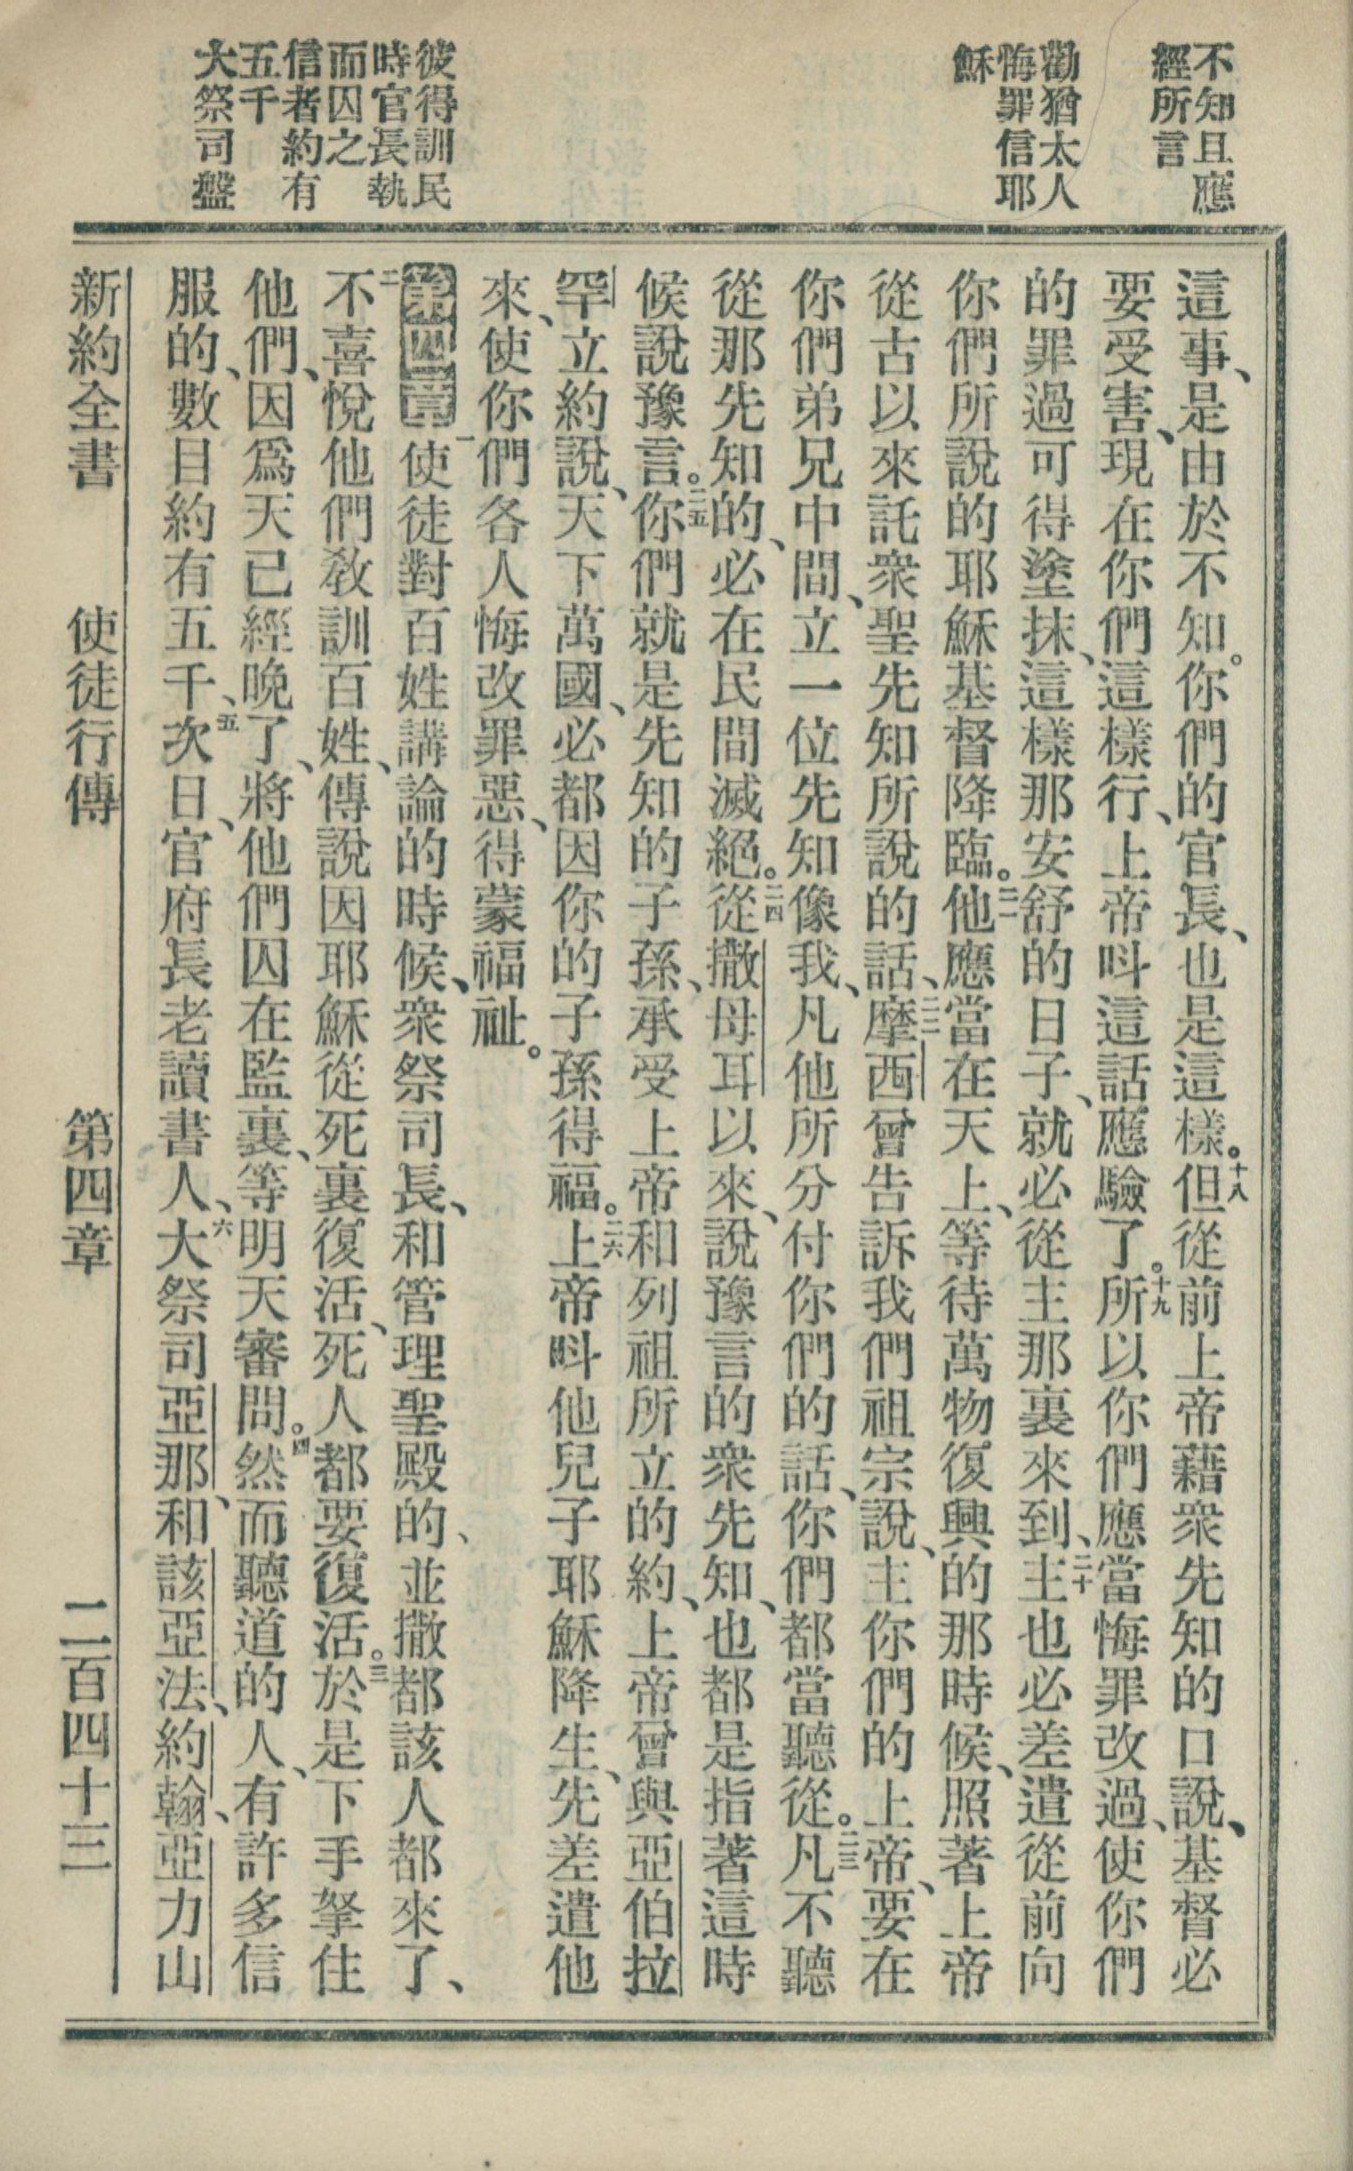 不知且應
經所言
勸猶太人
悔罪信耶
穌
彼得訓民
時官長執
而囚之
信者約有
五千
大祭司盤
這事、是由於不知。你們的官長、也是這樣。十八但從前上帝藉衆先知的口說、基督必
要受害、現在你們這樣行、上帝呌這話應驗了。十九所以你們應當悔罪改過、使你們
的罪過可得塗抹、這樣那安舒的日子、就必從主那裏來到、二十主也必差遣從前向
你們所說的耶穌基督降臨。二一他應當在天上、等待萬物復興的那時候、照著上帝
從古以來託衆聖先知所說的話、二二摩西曾告訴我們祖宗說、主你們的上帝、要在
你們弟兄中間、立一位先知像我、凡他所分付你們的話、你們都當聽從。二三凡不聽
從那先知的、必在民間滅絕。二四從撒母耳以來、說豫言的衆先知、也都是指著這時
候說豫言。二五你們就是先知的子孫、承受上帝和列祖所立的約、上帝曾與亞伯拉
罕立約說、天下萬國、必都因你的子孫得福。二六上帝呌他兒子耶穌降生、先差遣他
來、使你們各人悔改罪惡、得蒙福祉。
第四章 一使徒對百姓講論的時候、衆祭司長、和管理聖殿的、並撒都該人都來了、
二不喜悅他們教訓百姓、傳說因耶穌從死裏復活、死人都要復活。三於是下手拏住
他們、因爲天已經晚了、將他們囚在監裏、等明天審問。四然而聽道的人、有許多信
服的、數目約有五千、五次日、官府長老讀書人、六大祭司亞那、和該亞法、約翰、亞力山
新約全書 使徒行傳 第四章 二百四十三